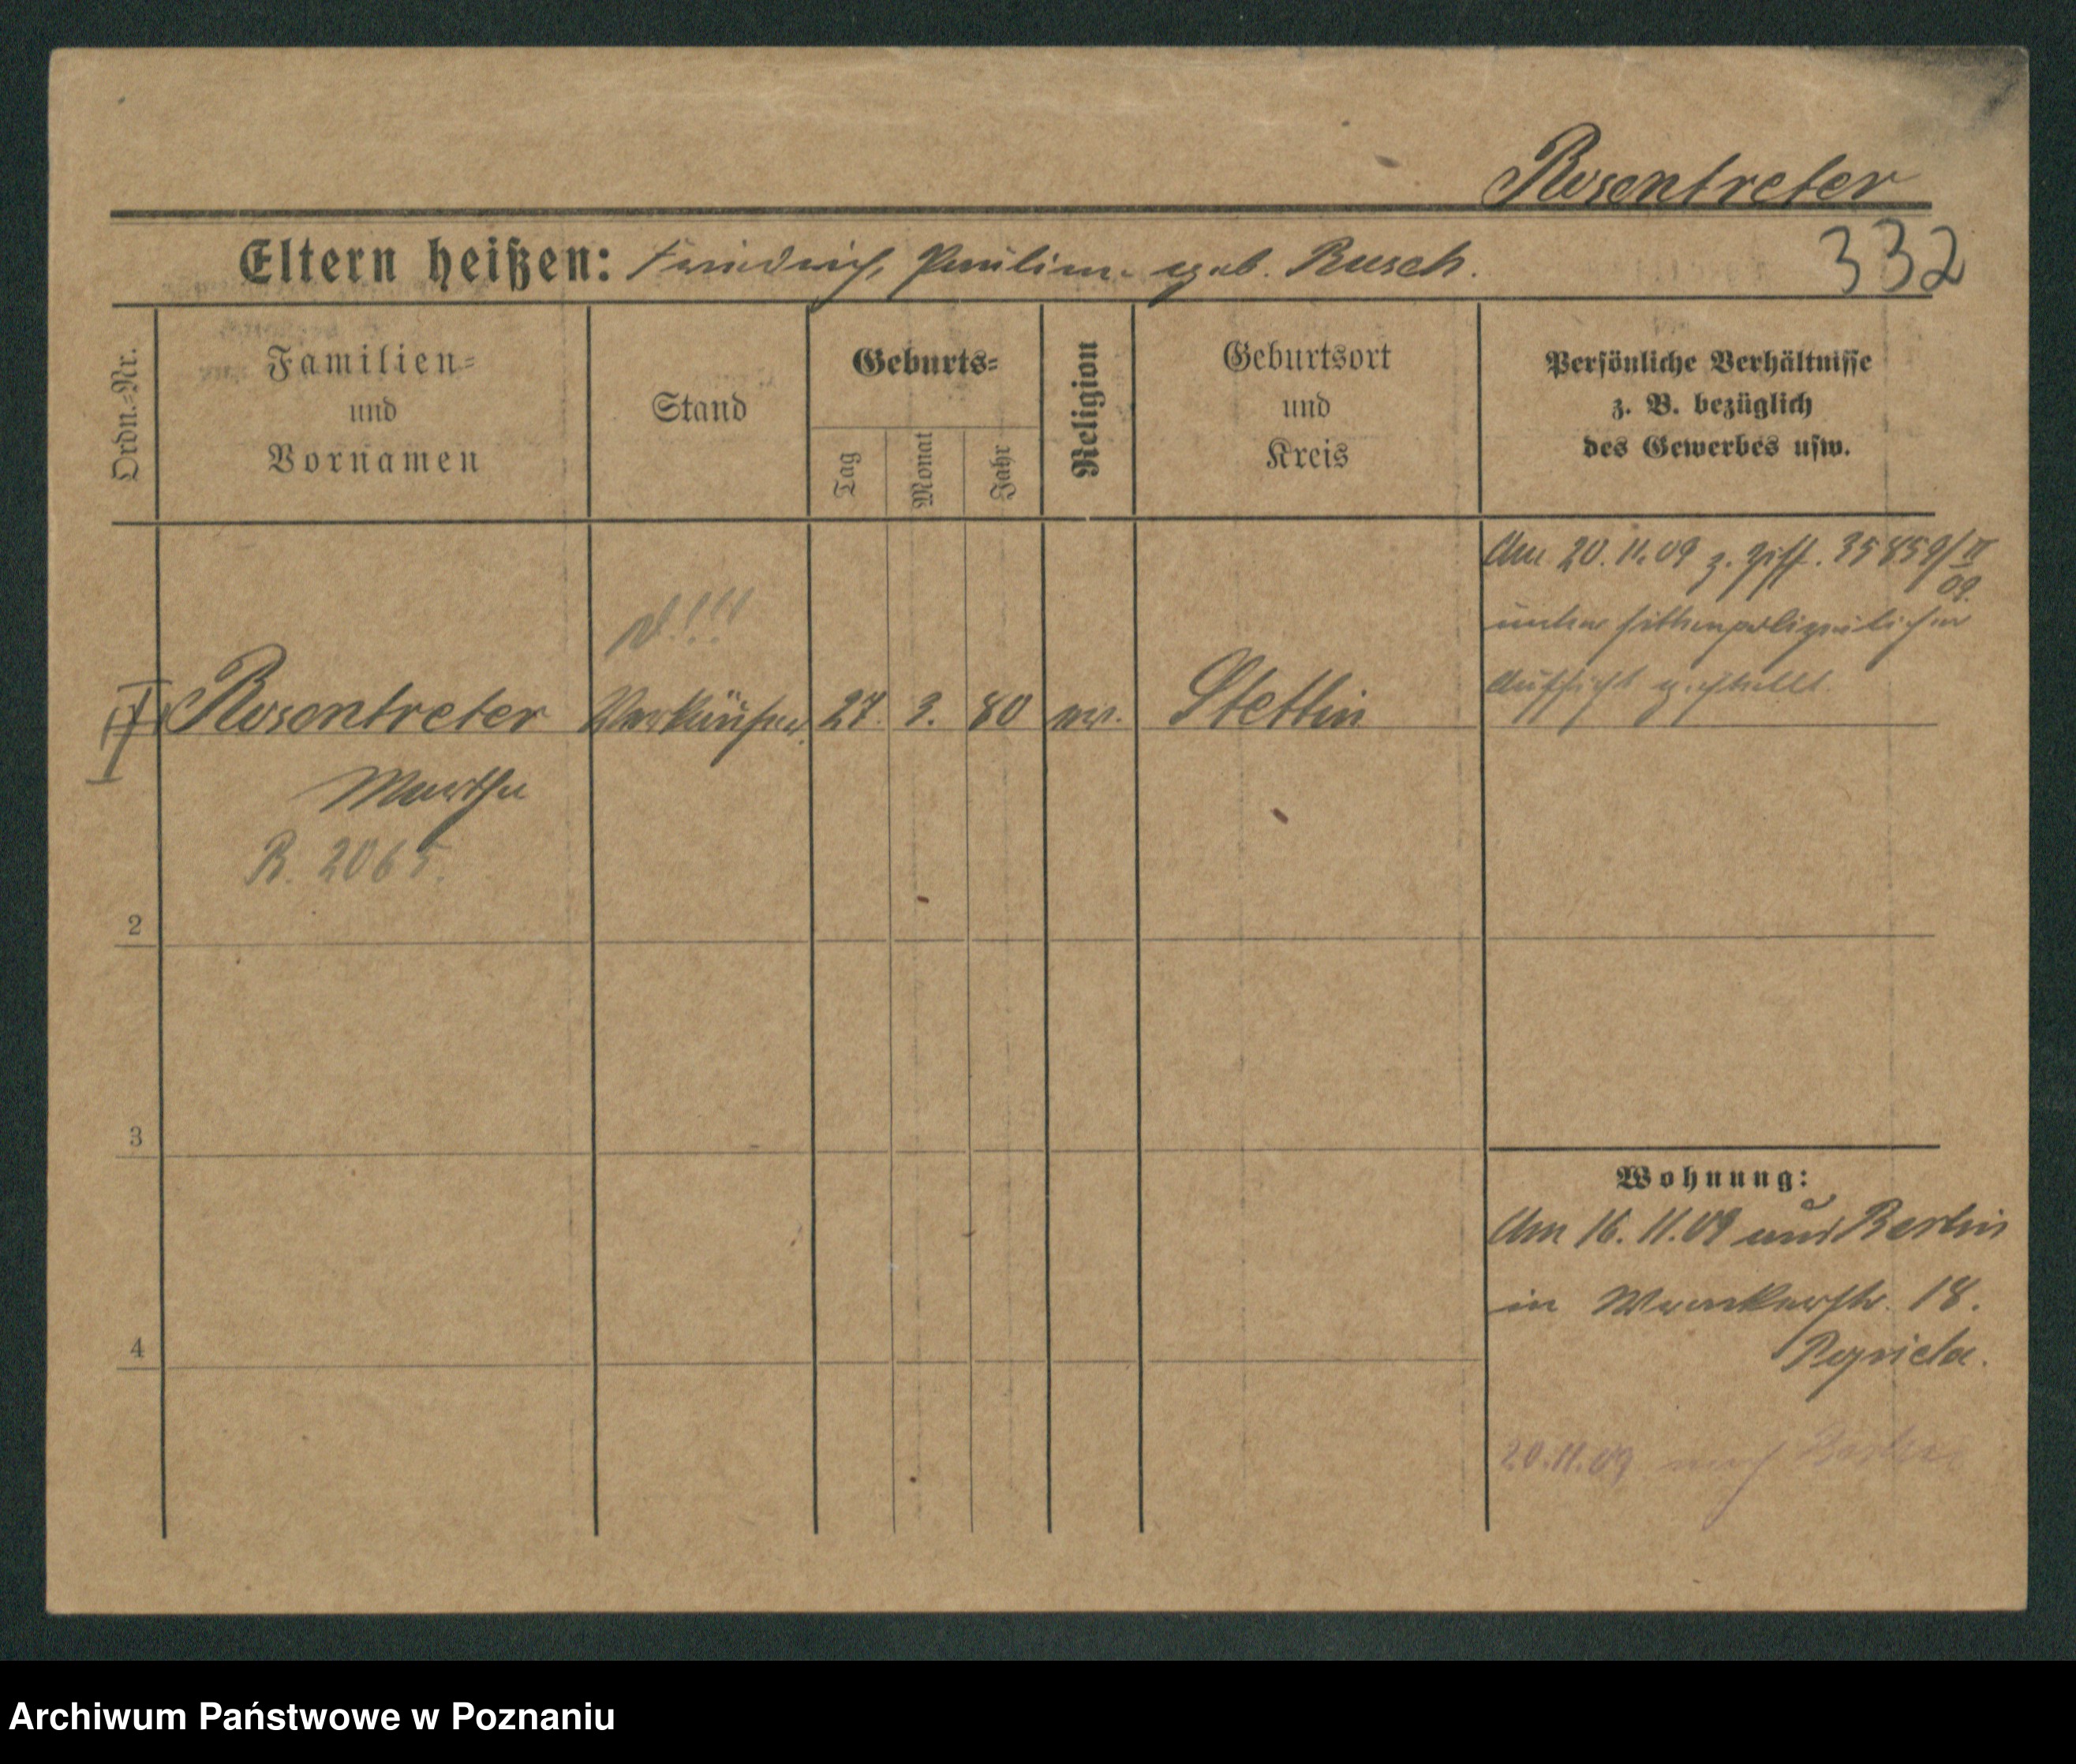 Rosentreter
332
Eltern heißen: Friedrich, Pauline geb. Busch.
Ordn.-Nr.
Familien- und Vornamen
Stand
Geburts-
Tag
Monat
Jahr
Religion
Geburtsort und Kreis
Persönliche Verhältnisse
z. B. bezüglich
des Gewerbes usw.
Am 20.11.09 z. Ziff. 35859/II
09.
unter sittenpolizeilicher
Aufsicht gestellt.
!!!
I Rosentreter Verkäuferin 27. 3. 80 ev. Stettin
Martha
R. 2065.
2
3
4
Wohnung:
Am 16.11.09 aus Berlin
in Wronkerstr. 18.
20.11.09 nach Berlin